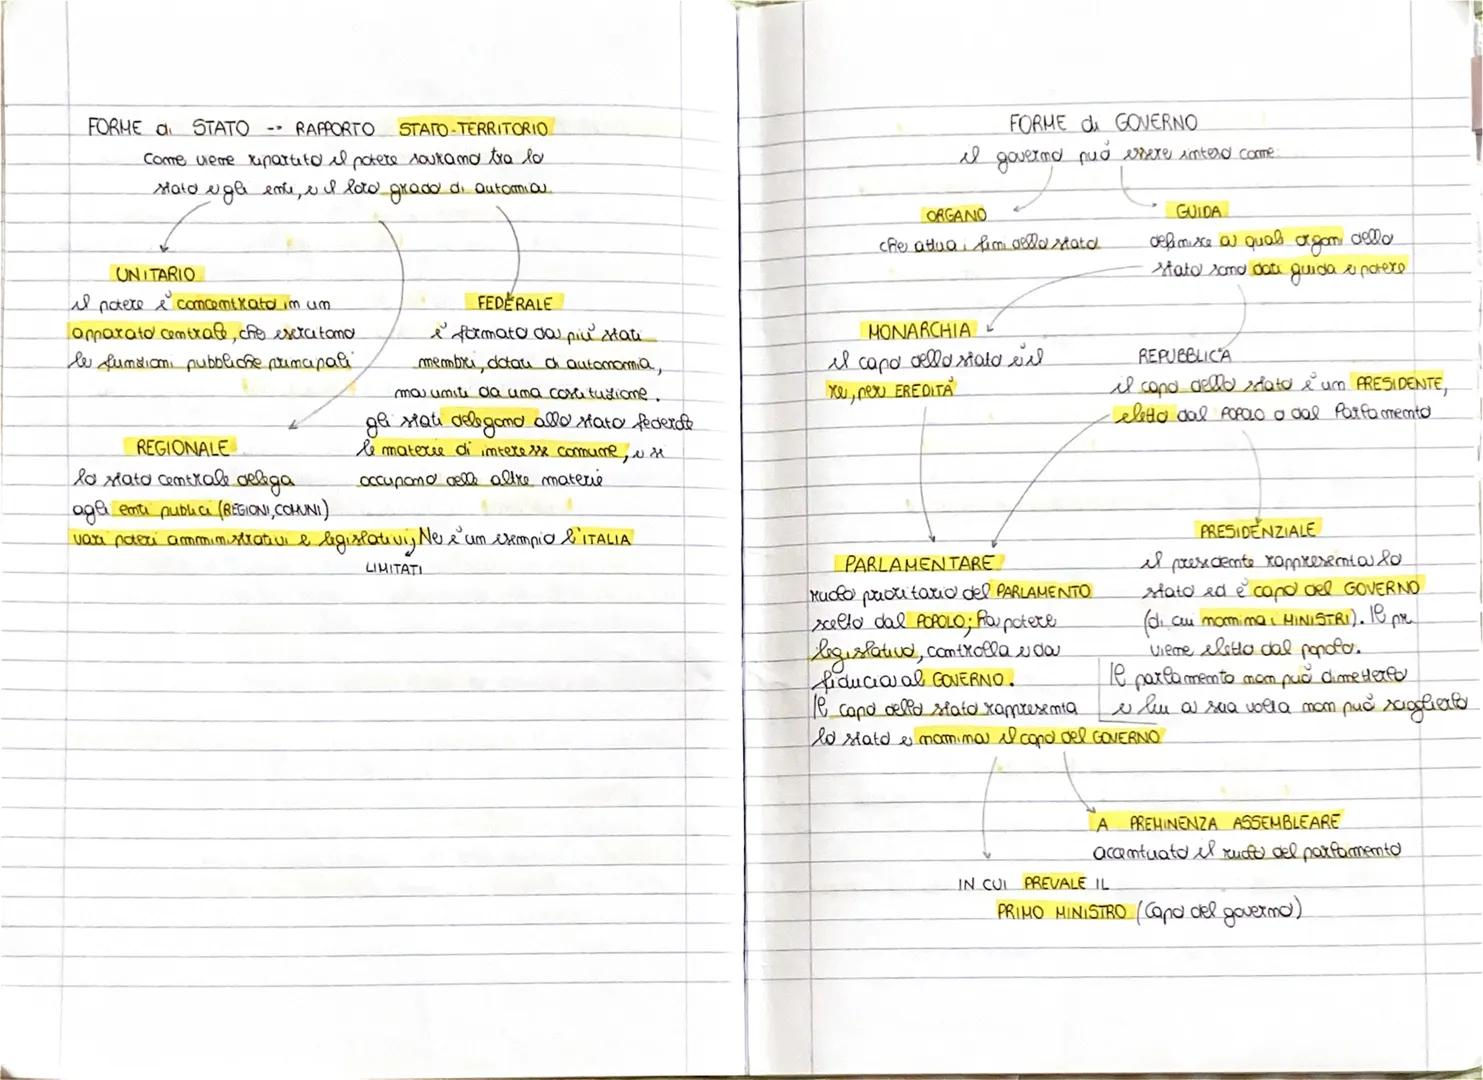 FORME di STATO -- RAPPORTO STATO-TERRITORIO
Come viene ripartito il potere sovrano tra lo
stato e gli enti, e il loro grado di automia
UNITARIO
il potere è concentrato in un
apparato centrale, che esercitano
le funzioni pubbliche principali
FEDERALE
è formato da più stati
membri, dotati di autonomia,
ma uniti da una costituzione.
gli stati delegano allo stato federale
le materie di interesse comune, e si
occupano delle altre materie
REGIONALE
lo stato centrale delega
agli enti pubblici (REGIONI, COMUNI)
vari poteri amministrativi e legislativi, Ne è un esempio l'ITALIA
LIMITATI
FORME di GOVERNO
il governo può essere inteso come:
ORGANO
che attua i fini dello stato
GUIDA
definisce a quali organi dello
stato sono dati guida e potere
MONARCHIA
il capo dello stato è il
re, per EREDITÀ
REPUBBLICA
il capo dello stato è un PRESIDENTE,
eletto dal POPOLO o dal Parlamento
PARLAMENTARE
ruolo prioritario del PARLAMENTO
scelto dal POPOLO; ha potere
legislativo, controlla e da
fiducia al GOVERNO.
Il capo dello stato rappresenta
lo stato e nomina il capo del GOVERNO
PRESIDENZIALE
il presidente rappresenta lo
stato ed è capo del GOVERNO
(di cui nomina i MINISTRI). Il pr.
viene eletto dal popolo.
Il parlamento non può dimetterlo
e lui a sua volta non può scioglierlo
A PREMINENZA ASSEMBLEARE
accentuato il ruolo del parlamento
IN CUI PREVALE IL
PRIMO MINISTRO (Capo del governo)